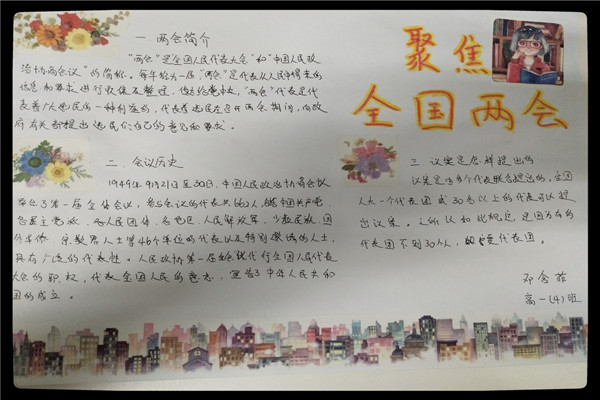 聚焦
全国两会
一 两会简介
"两会"是"全国人民代表大会"和"中国人民政
治协商会议"的简称。每年
"两会"代表是代
表着广大选民的一种利益的,代表着选民在召开两会期间,向政
府有关部门提出选民们自己的意见和要求。
二、会议历史
1949年9月21日至30日,中国人民政治协商会议
举行了第一届全体会议,参加会议的代表共662人,包括中国共产党、
各民主党派、人民团体、各地区、人民解放军、少数民族、国
外华侨、宗教界人士等46个单位的代表以及特别邀请的人士,
具有广泛的代表性。人民政协第一届会议代行全国人民代表
大会的职权,代表全国人民的意志,宣告了中华人民共和
国的成立。
三 议案是怎样提出的
议案是由多个代表联合提出的,全国
人大一个代表团或30名以上的代表可以提
出议案。之所以如此规定,是因为有的
代表团不到30人,
高一(4)班